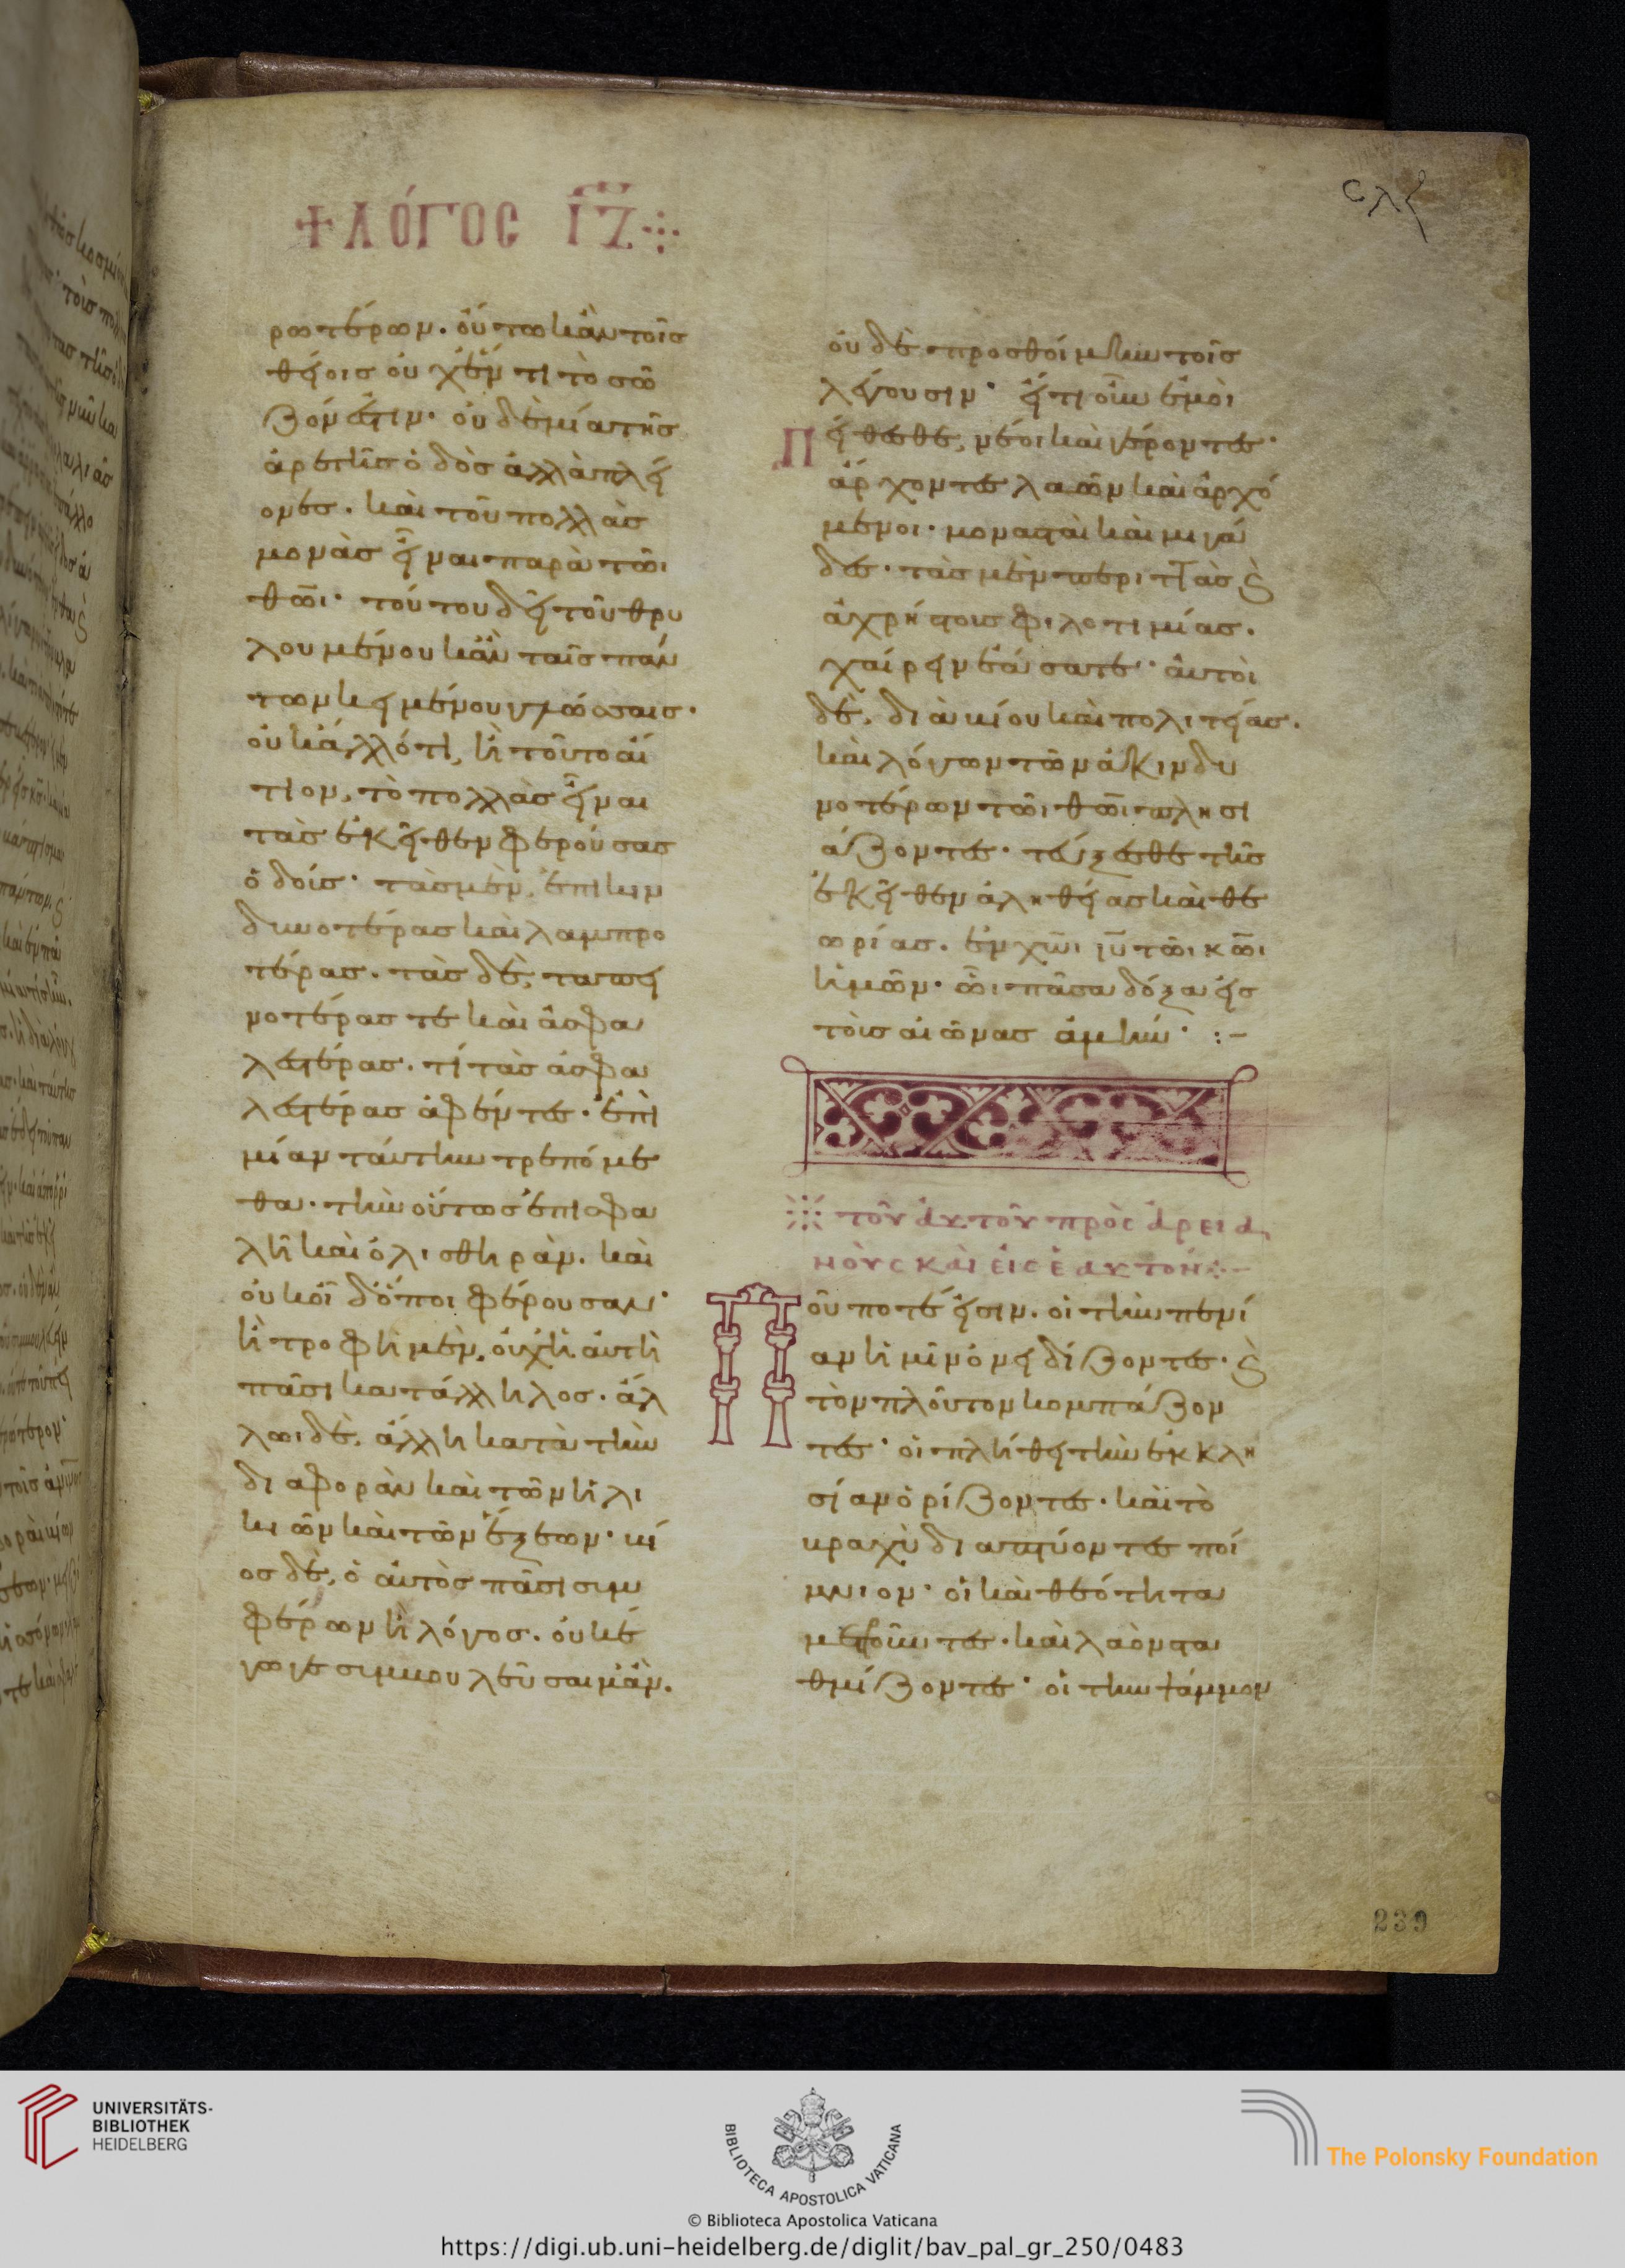 ✝ ΛΌΓΟC ΙΖ
σλζ
ρωτέρων. οὕτω κἂν τοῖσ
θείοις οὐχ ἕν τι τὸ σω
ζόν ἐστιν· οὐδὲ μία τῆσ
ἀρετῆσ ὁδὸσ ἀλλὰ πλεί
ονεσ. καὶ τοῦ πολλὰσ
μονὰσ εἶναι παρὰ τῶι
θῶι· τούτου δὴ τοῦ θρυ
λουμένου κἂν ταῖσ πάν
των κειμένου γλώσσαισ·
οὐκ ἄλλό τι, ἢ τοῦτο αἴ
τιον, τὸ πολλὰσ εἶναι
τὰσ ἐκεῖθεν φερούσασ
ὁδοίσ· τὰσ μὲν, ἐπικιν
δυνοτέρασ καὶ λαμπρο
τέρασ. τὰσ δὲ, ταπει
νοτέρασ τε καὶ ἀσφα
λεστέρασ. τί τὰσ ἀσφα
λεστέρασ ἀφέντεσ· ἐπὶ
μίαν ταύτην τρεπόμε
θα· τὴν οὕτωσ ἐπισφα
λῆ καὶ ὀλισθηράν. καὶ
οὐκ οἶδ' ὅποι φέρουσαν·
ἢ τροφὴ μὲν, οὐχὶ αὐτὴ
πᾶσι κατάλληλοσ. ἄλ
λωι δὲ, ἄλλη κατὰ τὴν
διαφορὰν καὶ τῶν ἡλι
κιῶν καὶ τῶν ἕξεων· βί
οσ δὲ, ὁ αὐτὸσ πᾶσι συμ
φέρων ἢ λόγοσ. οὐκ ἔ
γωγε συμβουλεῦσαιμ' ἂν.
οὐδὲ προσθοίμην τοῖσ
λέγουσιν· εἴ τι οὖν ἐμοὶ
Πείθεσθε, νέοι καὶ γέροντεσ·
ἄρχοντεσ λαῶν καὶ ἀρχό
μενοι· μονασταὶ καὶ μιγά
δεσ· τὰσ μὲν περιττὰσ καὶ
ἀχρήστους φιλοτιμίασ.
χαίρειν ἐάσατε· αὐτοὶ
δὲ, διὰ βίου καὶ πολιτείασ.
καὶ λόγων τῶν ἀκινδυ
νοτέρων τῶι θῶι πλησι
άζοντεσ· τεύξεσθε τῆσ
ἐκεῖθεν ἀληθείασ καὶ θε
ωρίασ. ἐν χῶι ιῦ τῶι κῶι
ἡμῶν· ὧι πᾶσα δόξα εἰσ
τοὺσ αἰῶνασ ἀμήν· :–
τοῦ αὐτοῦ πρὸς ἀρεια
νοὺς καὶ εἰς ἑαυτόν
Ποῦ ποτέ εἰσιν. οἱ τὴν πενί
αν ἡμῖν ὀνειδίζοντεσ· καὶ
τὸν πλοῦτον κομπάζον
τεσ· οἱ πλήθει τὴν ἐκκλη
σίαν ὁρίζοντεσ. καὶ τὸ
βραχὺ διαπτύοντεσ ποί
μνιον· οἱ καὶ θεότητα
μετροῦντεσ. καὶ λαὸν στα
θμίζοντεσ· οἱ τὴν ψάμμον
239
UNIVERSITÄTS-
BIBLIOTHEK
HEIDELBERG
BIBLIOTECA APOSTOLICA VATICANA
The Polonsky Foundation
© Biblioteca Apostolica Vaticana
https://digi.ub.uni-heidelberg.de/diglit/bav_pal_gr_250/0483